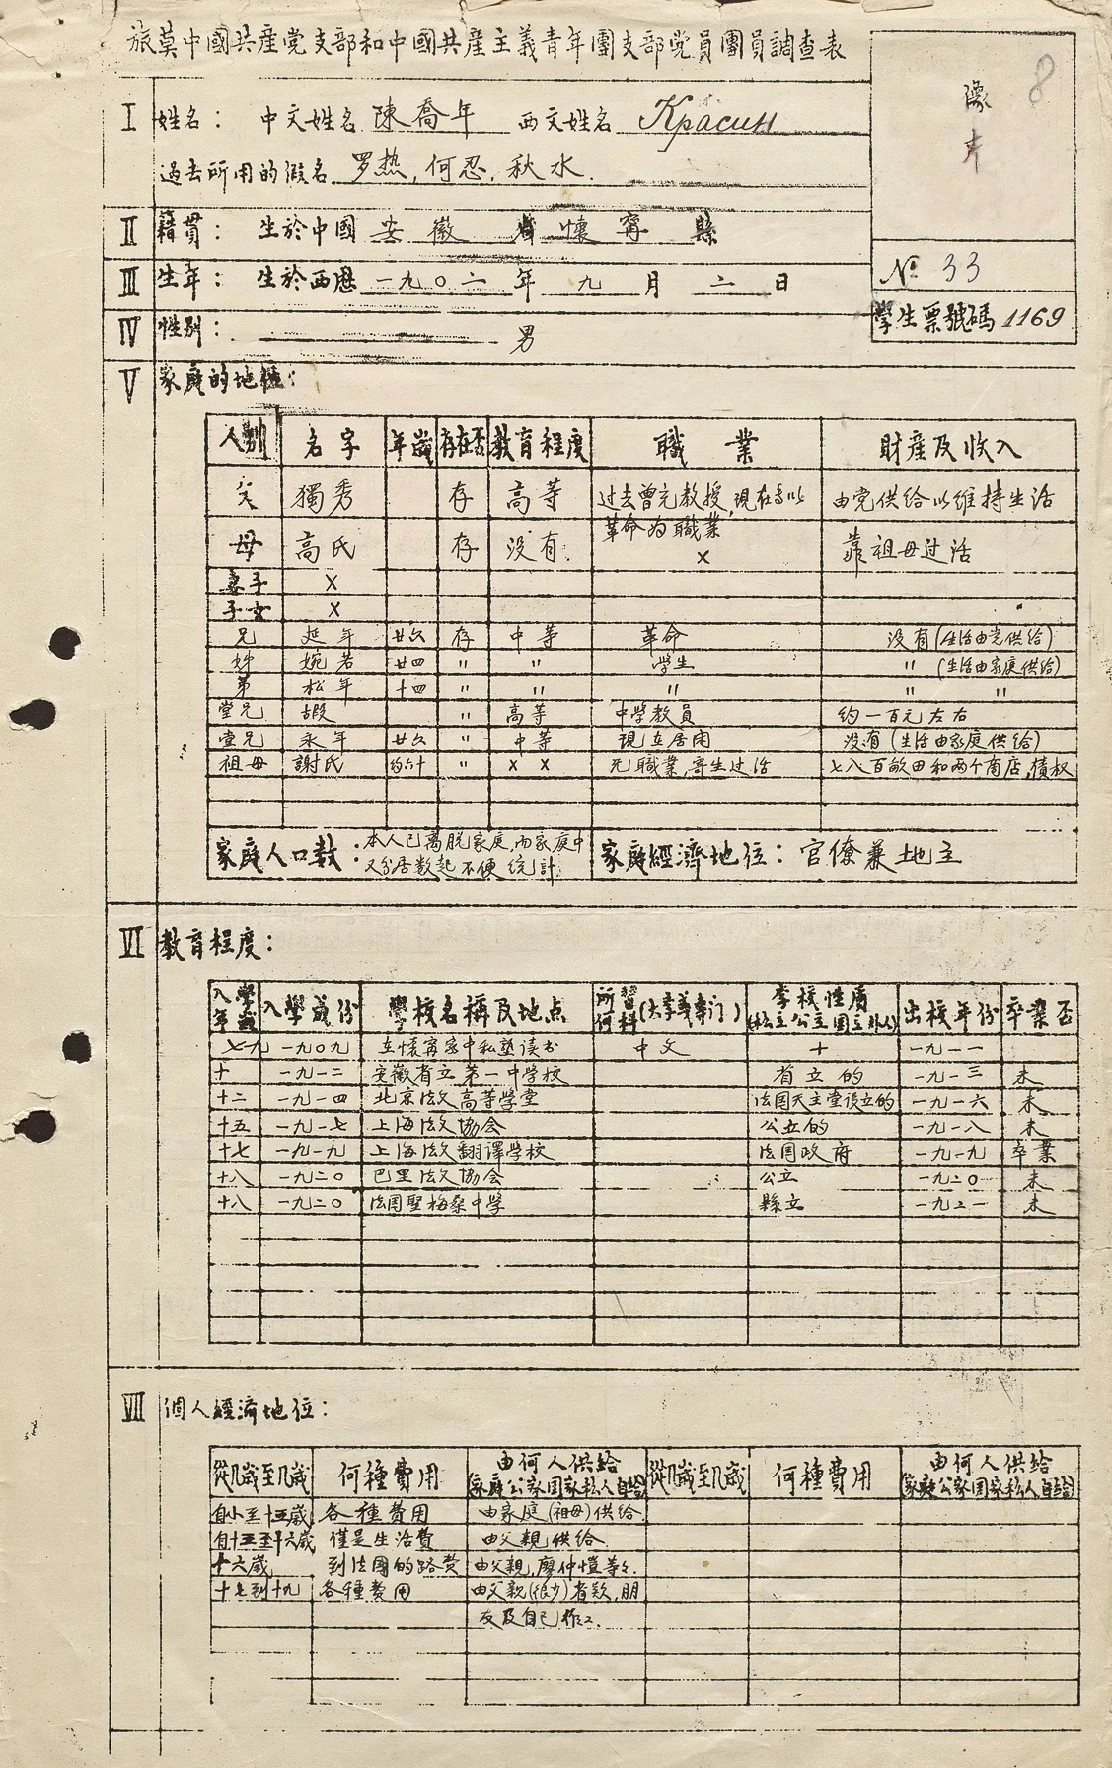 旅莫中國共産党支部和中國共産主義青年團支部党員團員調查表
8
像片
№ 33
學生票號碼 1169
I 姓名： 中文姓名 陳喬年 西文姓名 Красин
過去所用的假名 罗热, 何忍, 秋水.
II 籍貫： 生於中國 安徽省懷寧縣
III 生年： 生於西歷 一九〇二年九月二日
IV 性别： 男
V 家庭的地位：
人别 名字 年歲 存在否 教育程度 職業 財產及收入
父 獨秀 存 高等 过去曾充教授, 現在专以革命为職業 由党供给以维持生活
母 高氏 存 没有. x 靠祖母过活
妻子 x
子女 x
兄 延年 廿六 存 中等 革命 没有(生活由党供给)
姊 婉若 廿四 〃 〃 学生 〃 (生活由家庭供给)
弟 松年 十四 〃 〃 〃 〃 〃
堂兄 嘏 〃 高等 中学教員 约一百元左右
堂兄 永年 廿六 〃 中等 現在居闲 没有(生活由家庭供给)
祖母 謝氏 〃 x x 无職業, 寄生过活 七八百畝田和两个商店, 債权
家庭人口数：本人已离脱家庭, 而家庭中
又分居数起不便统計
家庭經濟地位：官僚兼地主
VI 教育程度：
入學年歲 入學歲份 學校名稱及地点 所習何科(大學專门) 李校性质(私立公立国立外人) 出校年份 卒業否
七九 一九〇九 在懷寧家中私塾读书 中文 + 一九一一
十 一九一二 安徽省立第一中学校 省立的 一九一三 未
十二 一九一四 北京法文高等学堂 法国天主堂设立的 一九一六 未
十五 一九一七 上海法文协会 公立的 一九一八 未
十七 一九一九 上海法文翻译学校 法国政府 一九一九 卒業
十八 一九二〇 巴里法文协会 公立 一九二〇 未
十八 一九二〇 法国聖梅桑中学 縣立 一九二一 未
VII 個人經濟地位：
從几歲至几歲 何種費用 由何人供給(家庭公家国家私人自给) 從几歲至几歲 何種費用 由何人供給(家庭公家国家私人自给)
自小至十五歲 各種費用 由家庭(祖母)供给.
自十五至十六歲 僅是生活費 由父親供给
十六歲 到法國的路費 由父親, 廖仲愷等々.
十七到十九 各種費用 由父親(很少)者欵, 朋
友及自己作工.